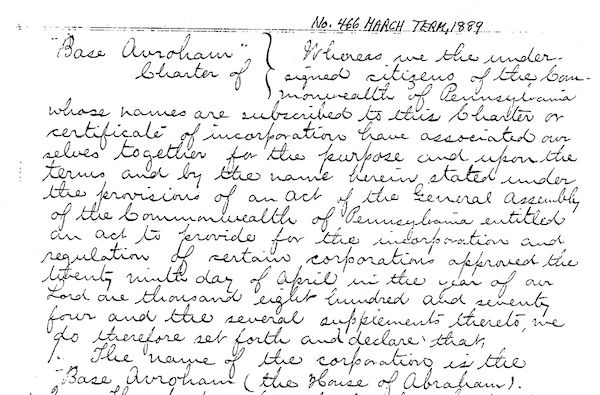 No. 466 MARCH TERM, 1889
"Base Avroham" } Whereas we the under-
Charter of signed citizens of the Com-
monwealth of Pennsylvania
whose names are subscribed to this Charter or
certificate of incorporation have associated our
selves together for the purpose and upon the
terms and by the name herein stated under
the provisions of an act of the General Assembly
of the Commonwealth of Pennsylvania entitled
an act to provide for the incorporation and
regulation of certain corporations approved the
twenty ninth day of April in the year of our
Lord one thousand eight hundred and seventy
four and the several supplements thereto, we
do therefore set forth and declare that,
1. The name of the corporation is the
"Base Avroham (the House of Abraham).